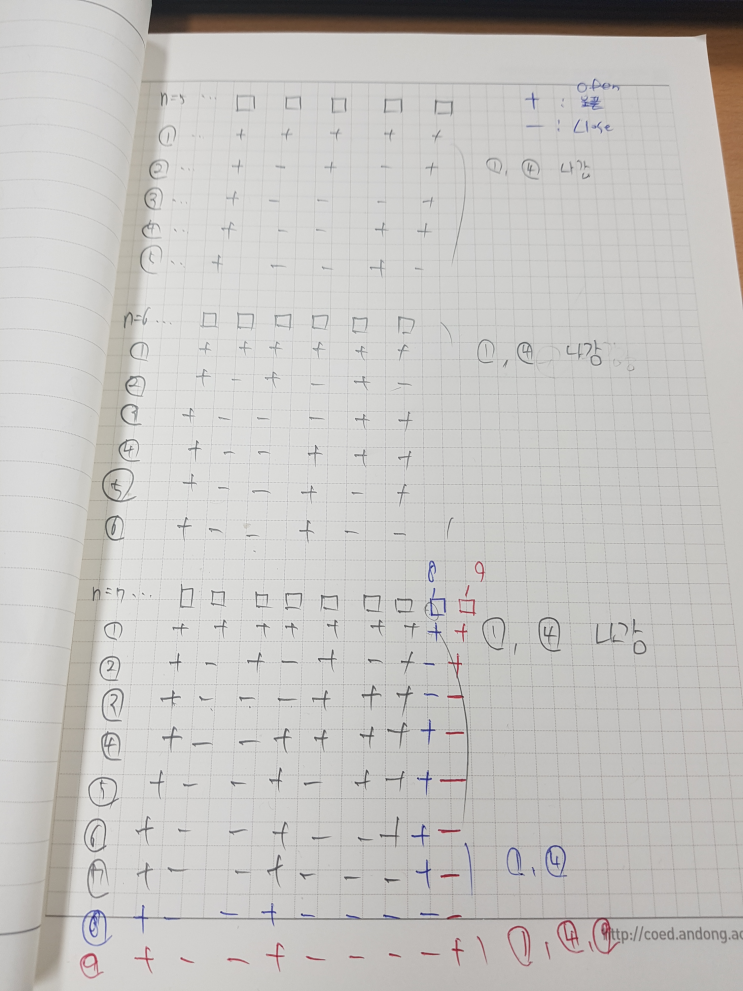 n=5 ... □ □ □ □ □
+ : open
- : close
① .. + + + + +
② .. + - + - + ①, ④ 나감
③ .. + - - - +
④ .. + - - + +
⑤ .. + - - + -
n=6 ... □ □ □ □ □ □
① + + + + + + ①, ④ 나감
② + - + - + -
③ + - - - + +
④ + - - + + +
⑤ + - - + - +
⑥ + - - + - -
8 9
n=7 ... □ □ □ □ □ □ □ □ □
① + + + + + + + + + ①, ④ 나감
② + - + - + - + - +
③ + - - - + + + - -
④ + - - + + + + + -
⑤ + - - + - + + + -
⑥ + - - + - - + + -
⑦ + - - + - - - + - ①, ④
⑧ + - - + - - - - -
⑨ + - - + - - - - + ①, ④, ⑨
http://coed.andong.ac